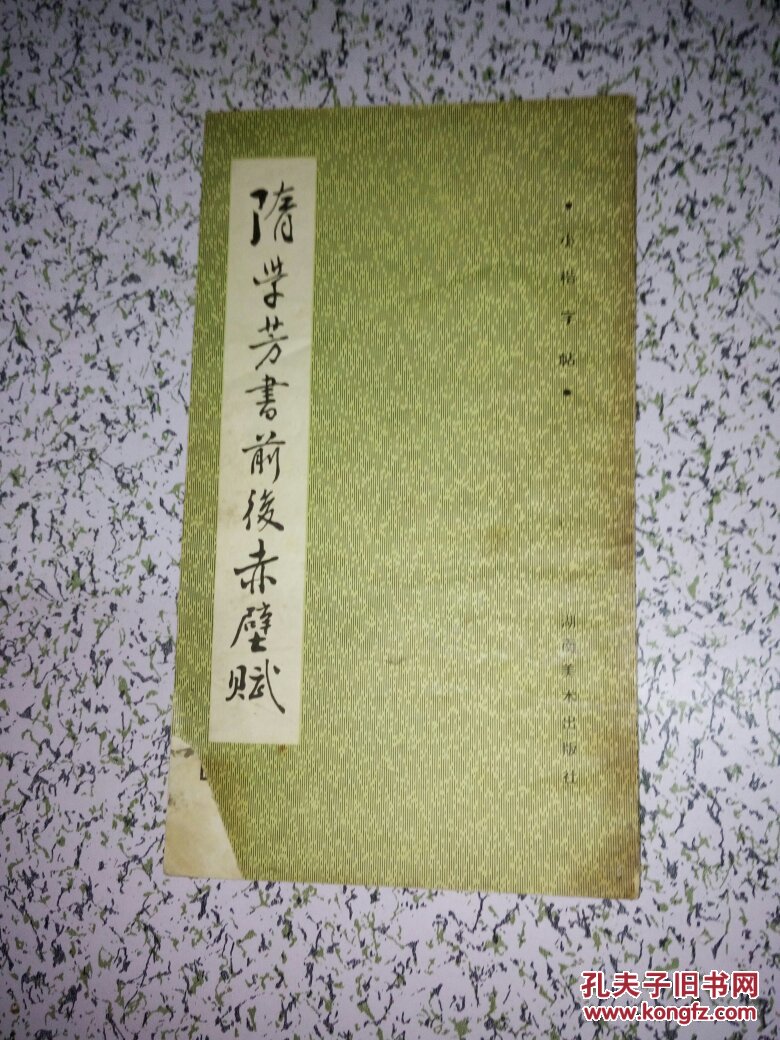 隋学芳書前後赤壁賦
•小楷字帖•
湖南美术出版社
孔夫子旧书网
www.kongfz.com